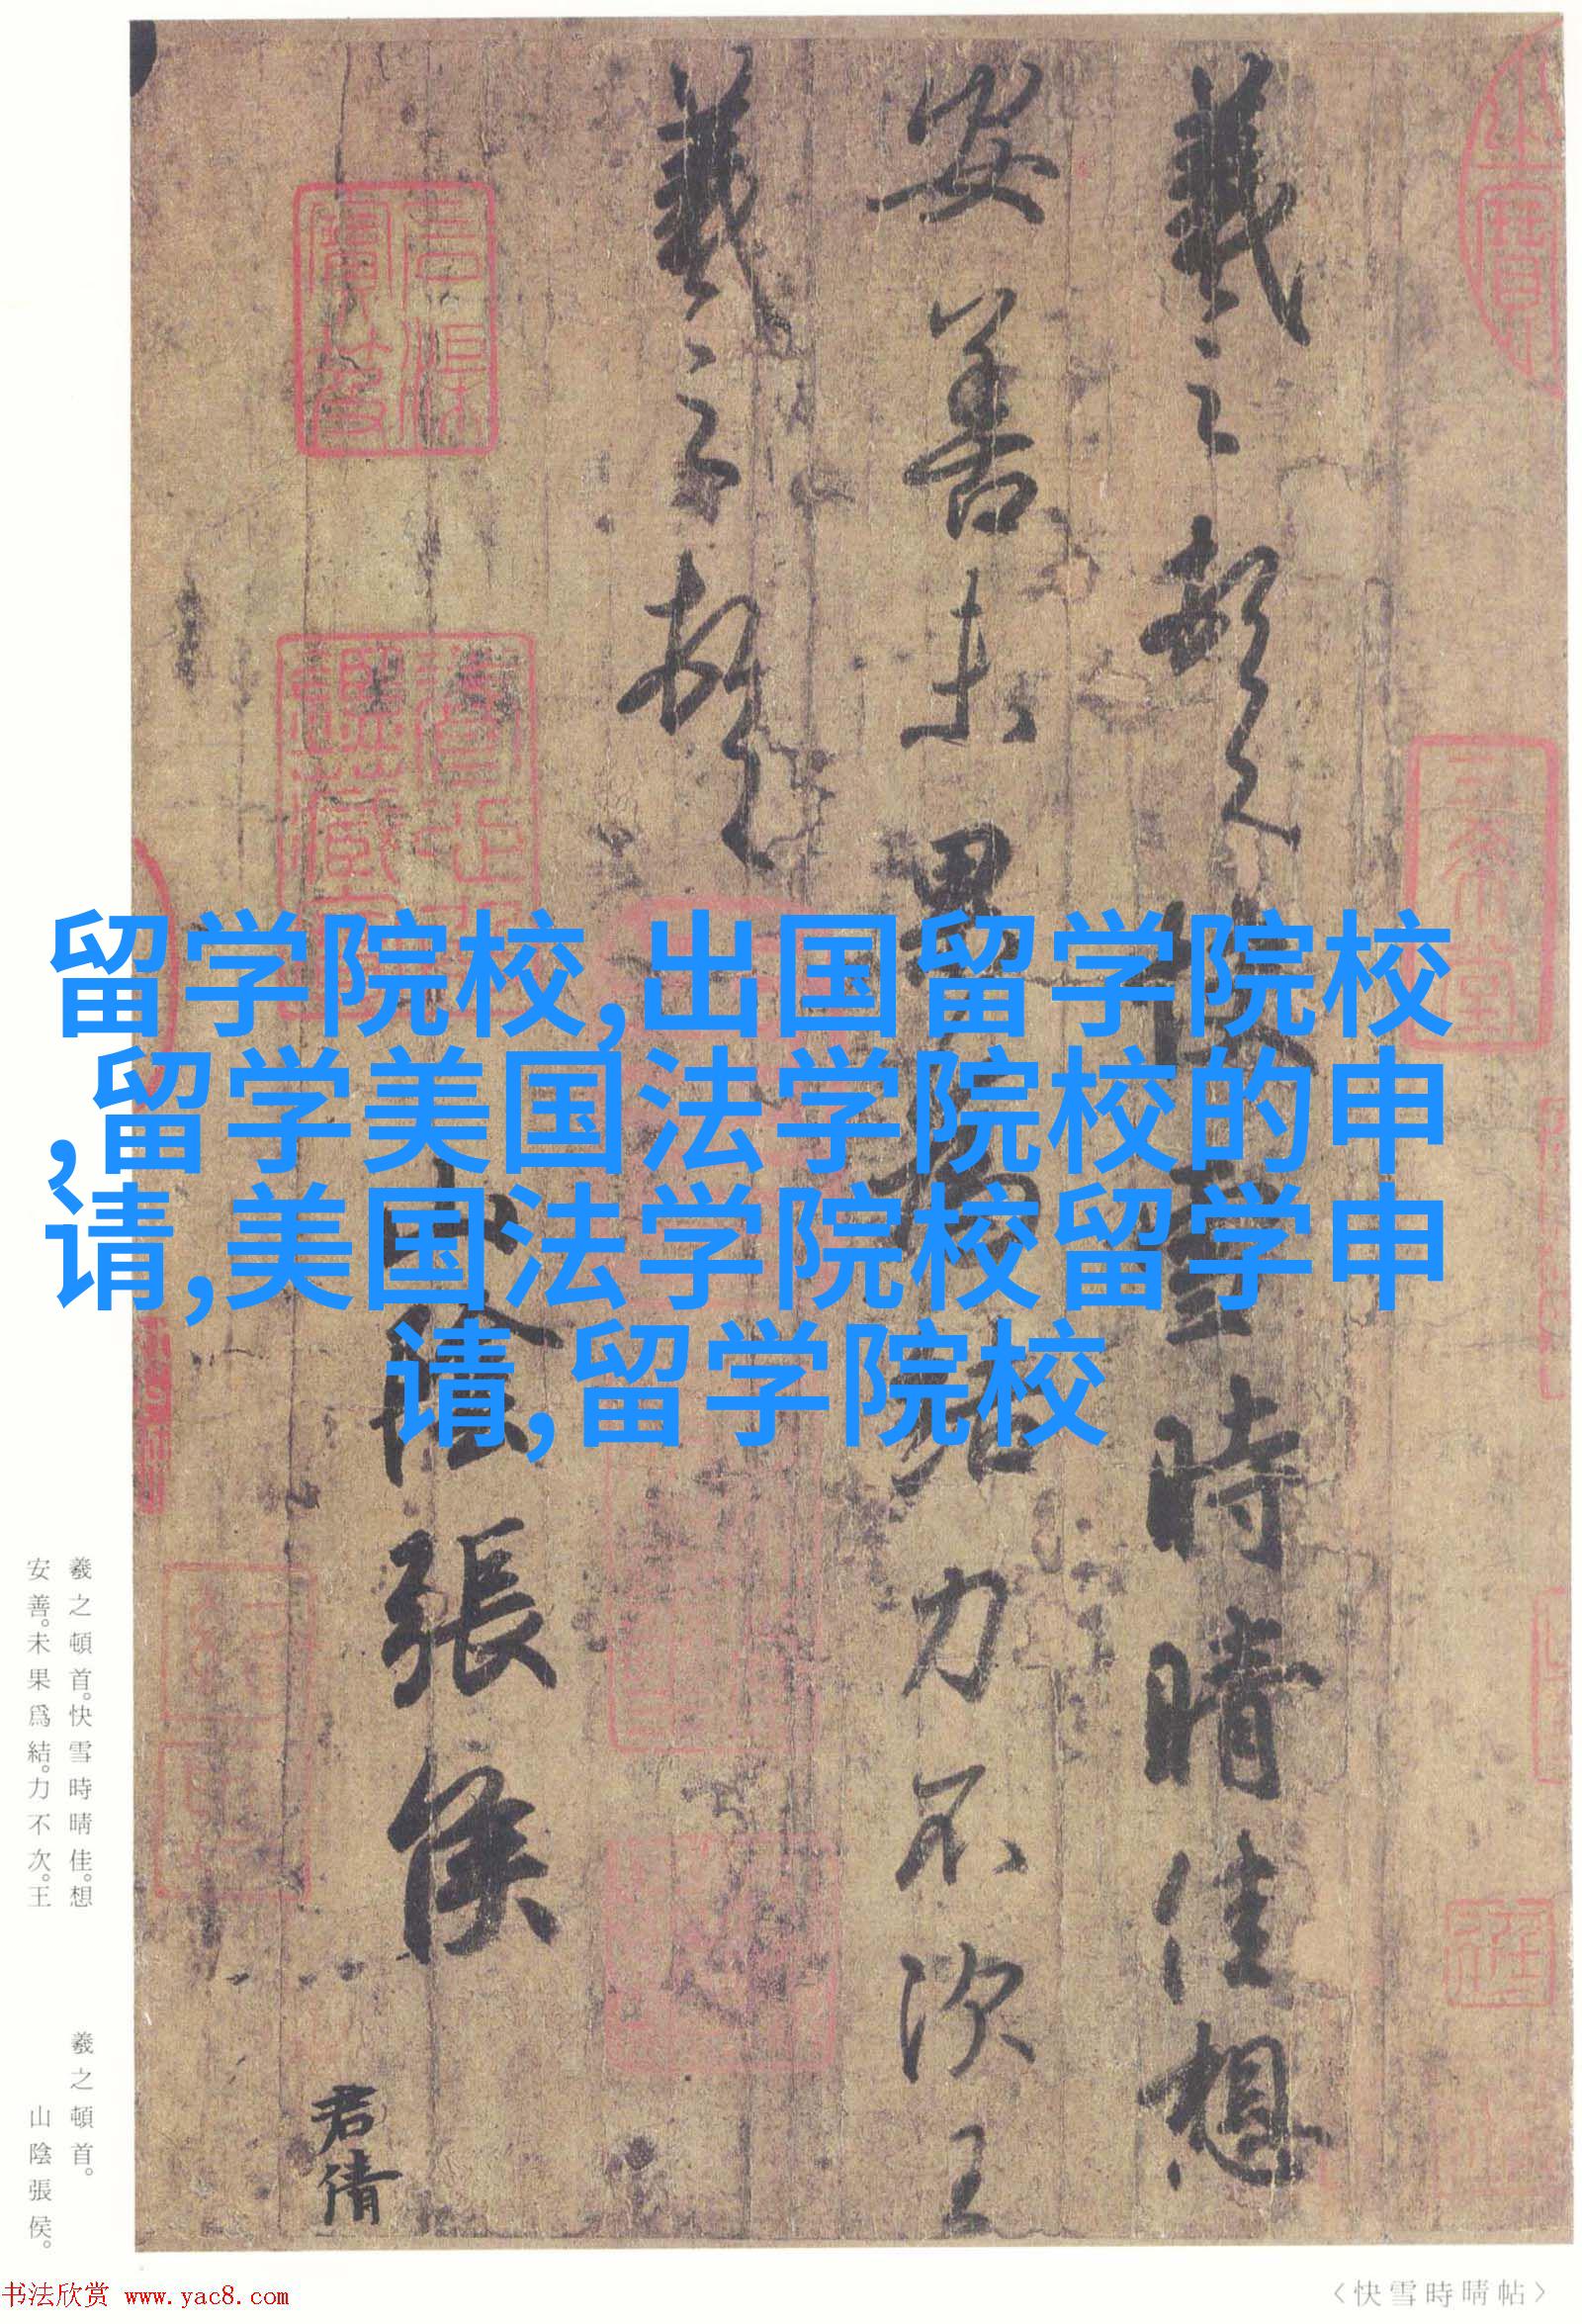 羲之頓首快雪時晴佳想
安善未果為結力不次王
羲之頓首
山陰張侯
君倩
三希堂
留学院校,出国留学院校
,留学美国法学院校的申
请,美国法学院校留学申
请,留学院校
羲之頓首。快雪時晴佳。想
安善。未果爲結。力不次。王
羲之頓首。
山陰張侯。
书法欣赏 www.yac8.com
〈快雪時晴帖〉